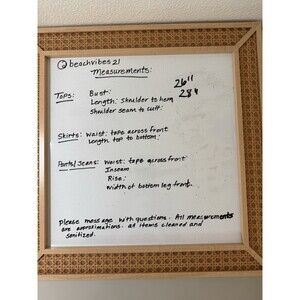 @beachvibes21
Measurements:
Tops: Bust: 26"
Length: Shoulder to hem 28"
Shoulder seam to cuff:
Skirts: Waist: tape across front
Length top to bottom:
Pants/Jeans: Waist: tape across front
Inseam
Rise:
Width of bottom leg front
Please message with questions. All measurements
are approximations. All items cleaned and
sanitized.